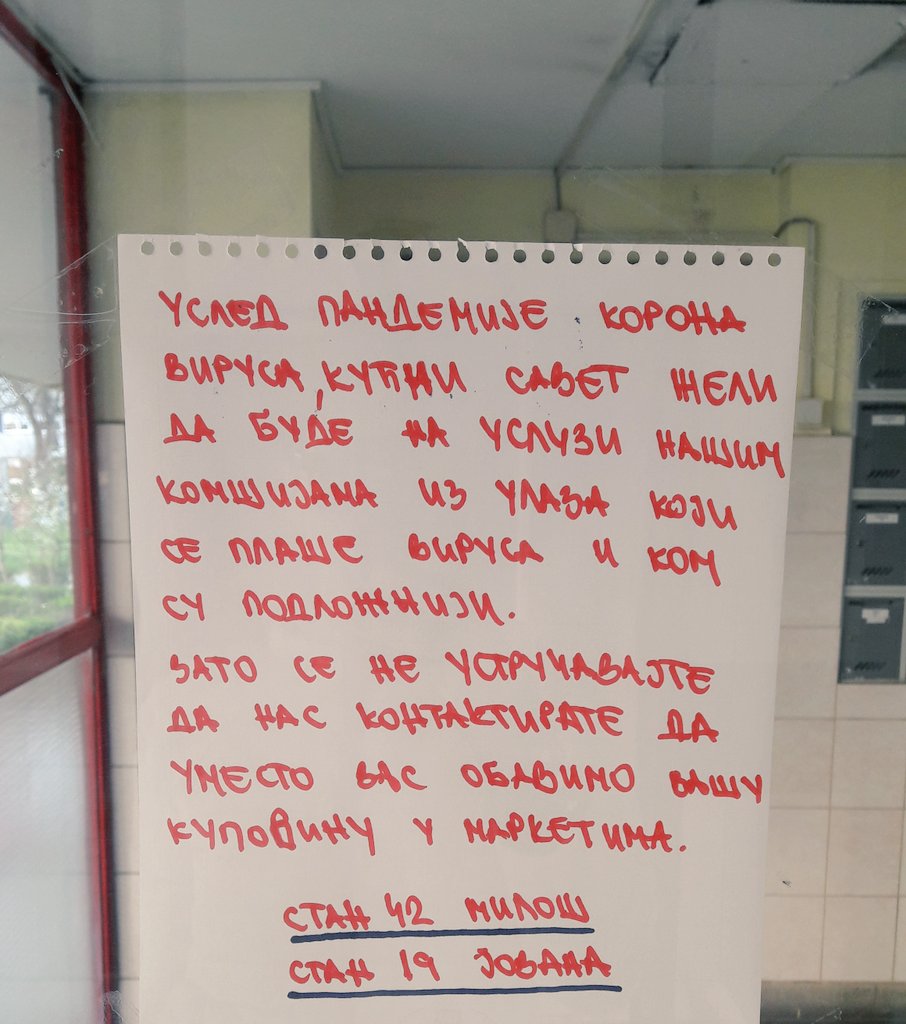 УСЛЕД ПАНДЕМИЈЕ КОРОНА
ВИРУСА, КУЋНИ САВЕТ ЖЕЛИ
ДА БУДЕ НА УСЛУЗИ НАШИМ
КОМШИЈАМА ИЗ УЛАЗА КОЈИ
СЕ ПЛАШЕ ВИРУСА И КОМ
СУ ПОДЛОЖНИЈИ.
ЗАТО СЕ НЕ УСТРУЧАВАЈТЕ
ДА НАС КОНТАКТИРАТЕ ДА
УМЕСТО ВАС ОБАВИМО ВАШУ
КУПОВИНУ У МАРКЕТИМА.
СТАН 42 МИЛОШ
СТАН 19 ЈОВАНА